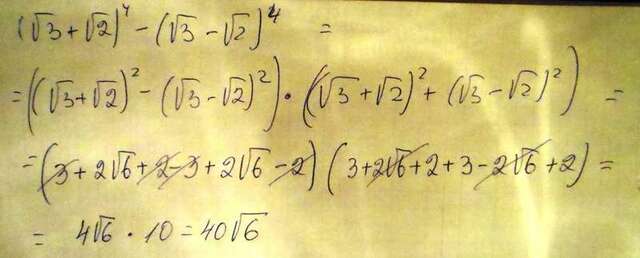 (√3+√2)⁴ - (√3-√2)⁴ =
= ((√3+√2)² - (√3-√2)²) · ((√3+√2)² + (√3-√2)²) =
= (3+2√6+2-3+2√6-2) (3+2√6+2+3-2√6+2) =
= 4√6 · 10 = 40√6